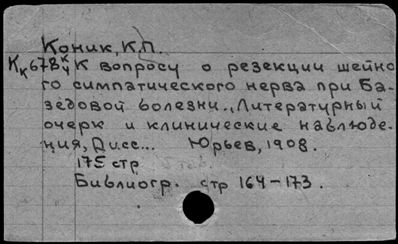 Коник, К.П.
Кк678 К вопросу о резекции шейно
го симпатического нерва при Ба-
зедовой болезни., Литературный
очерк и клинические наблюде-
ния, Дисс... Юрьев, 1908.
175 стр
Библиогр. стр 164-173.